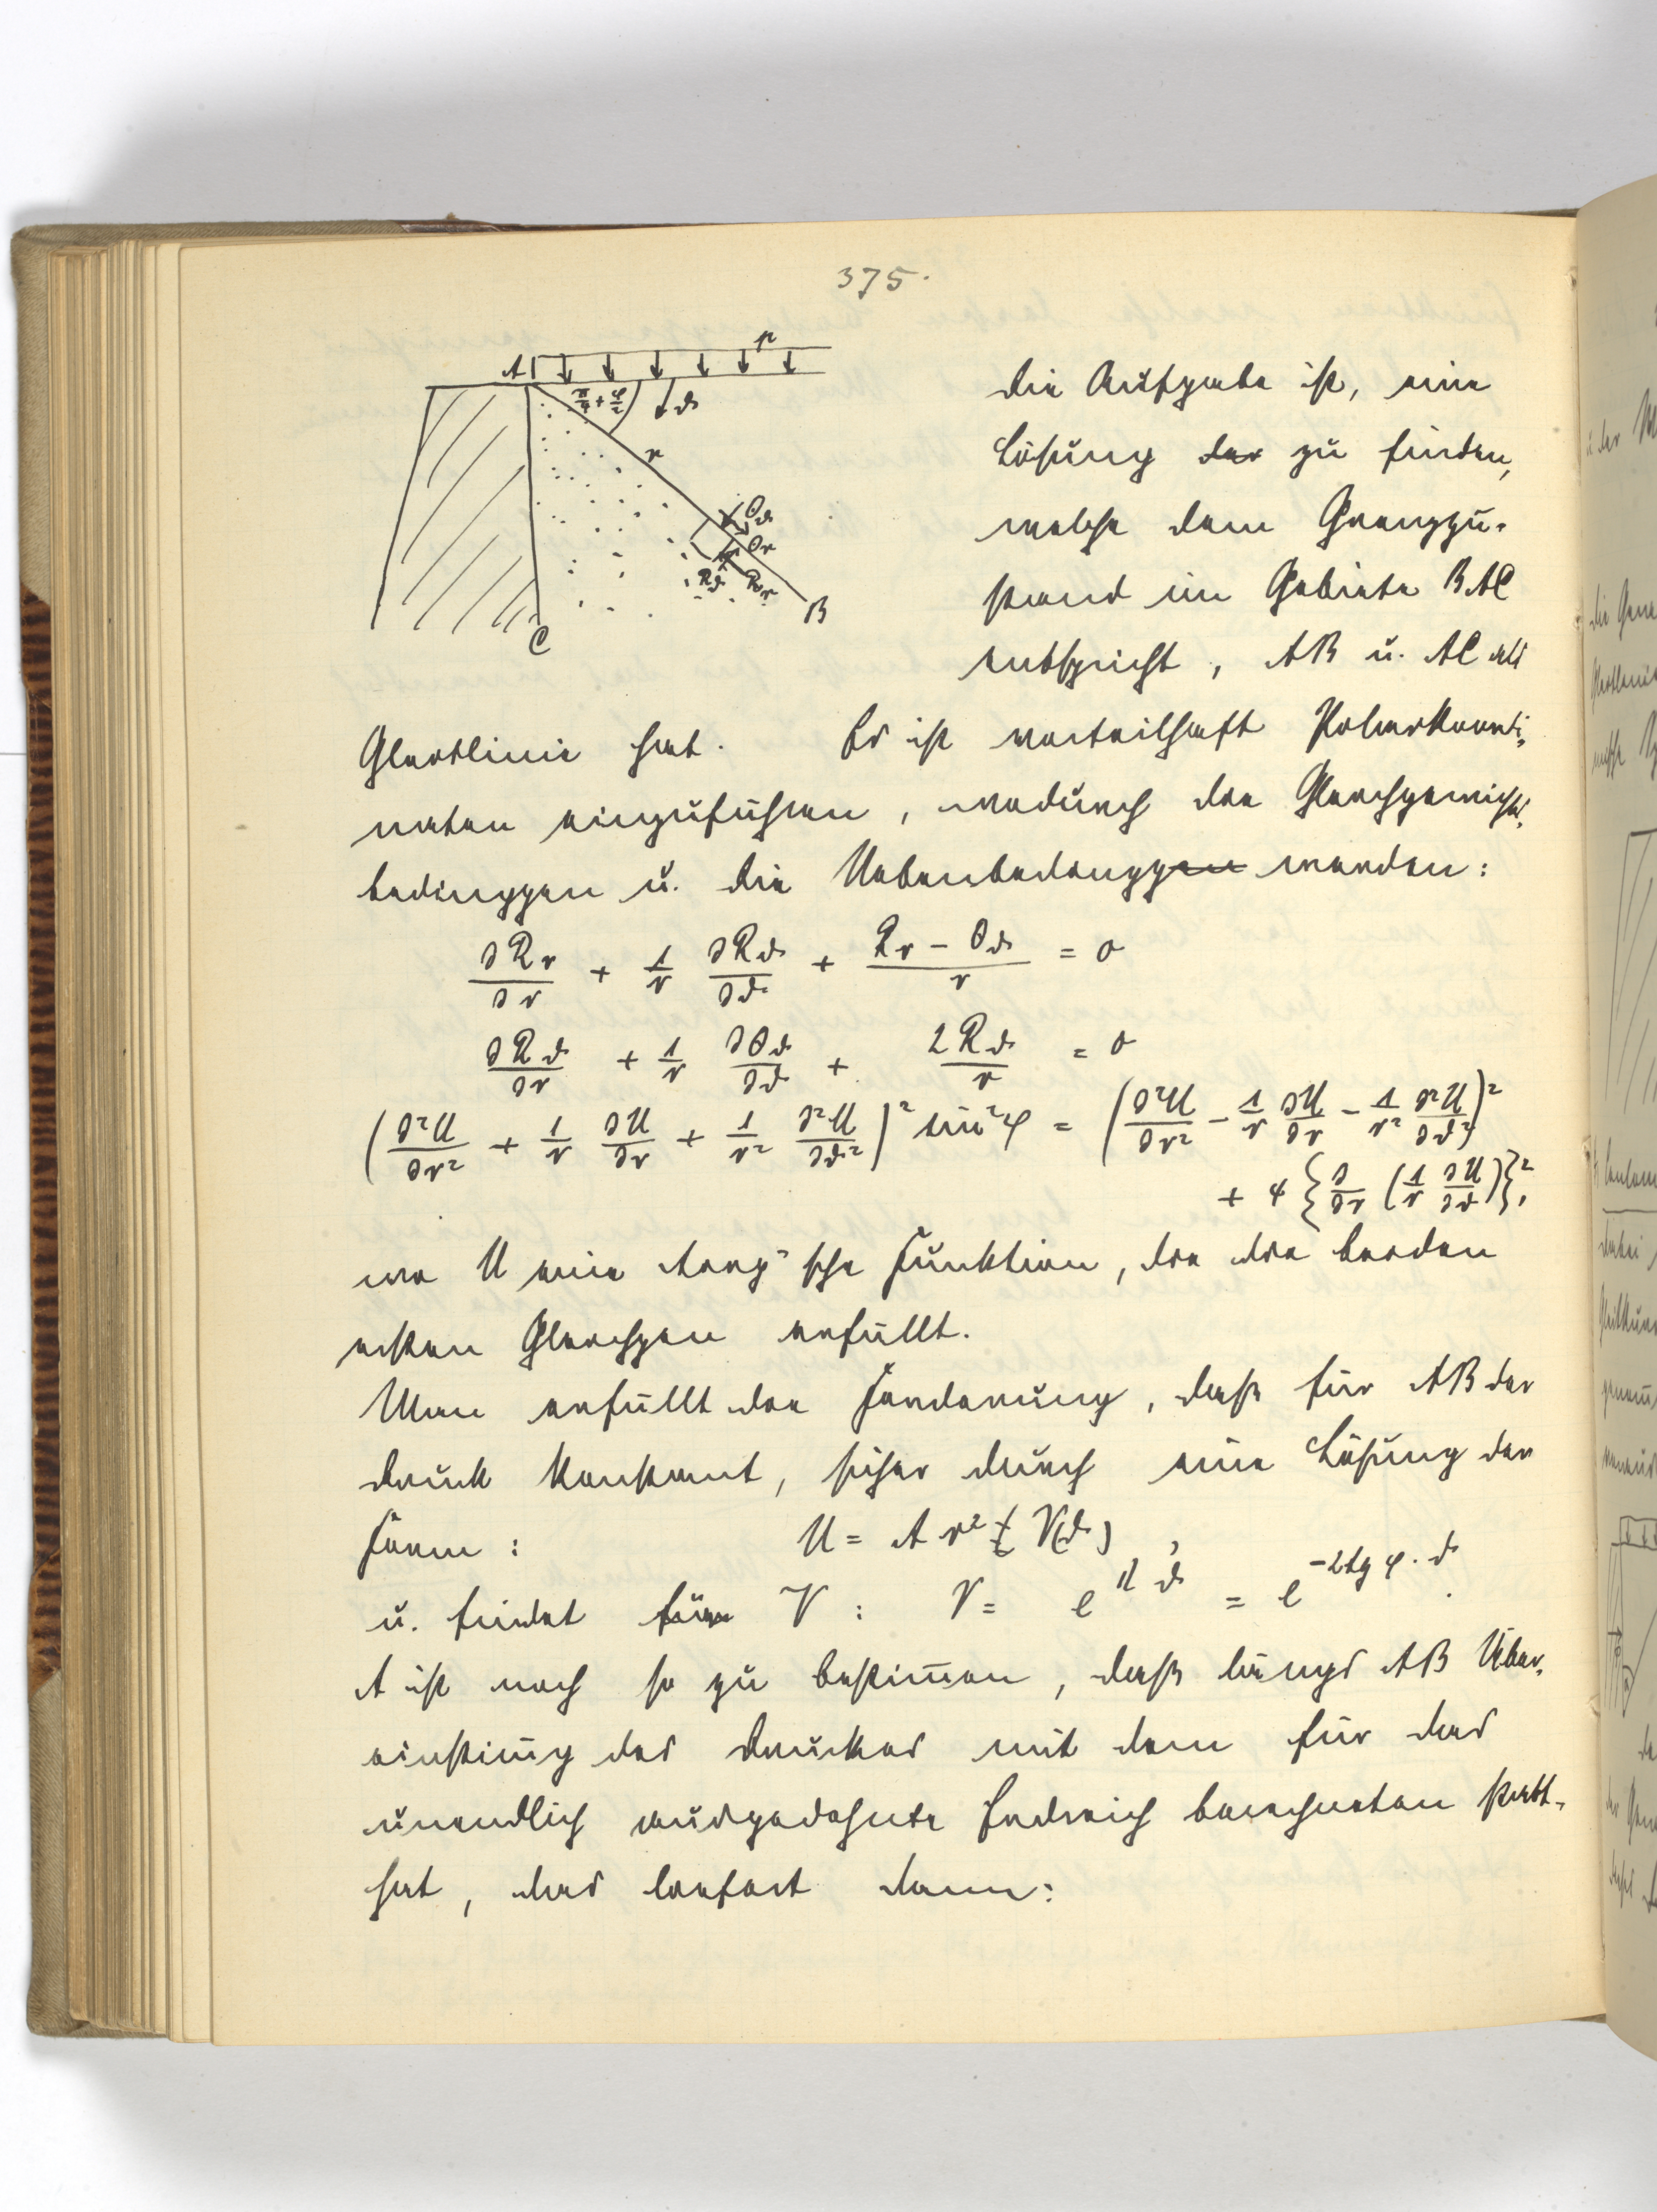 375.
A p
π/4 + φ/2 ϑ
r
Θϑ
Θr
Rϑ Rr
B
C
Die Aufgabe ist, eine
Lösung der zu finden,
welche dem Grenzzu-
stand im Gebiete BAC
entspricht, AB u. AC als
Gleitlinie hat. Es ist vorteilhaft Polarkoordi-
naten einzuführen, wodurch die Gleichgewichts-
bedinggen u. die Nebenbedinggen werden:
∂Rr/∂r + 1/r ∂Rϑ/∂ϑ + (Rr − Θϑ)/r = 0
∂Rϑ/∂r + 1/r ∂Θϑ/∂ϑ + 2Rϑ/r = 0
(∂²U/∂r² + 1/r ∂U/∂r + 1/r² ∂²U/∂ϑ²)² sin²φ = (∂²U/∂r² − 1/r ∂U/∂r − 1/r² ∂²U/∂ϑ²)²
+ 4 {∂/∂r (1/r ∂U/∂ϑ)}²,
wo U eine Airy'sche Funktion, die die beiden
ersten Gleichgen erfüllt.
Man erfüllt die Forderung, daß für AB der
Druck konstant, sicher durch eine Lösung der
Form: U = A r² V(ϑ),
u. findet für V: V = e^{μϑ} = e^{−2tg φ·ϑ}.
A ist noch so zu bestim̄en, daß längs AB Über-
einstim̄g des Druckes mit dem für das
unendlich ausgedehnte Erdreich berechneten statt-
hat, das liefert dann: